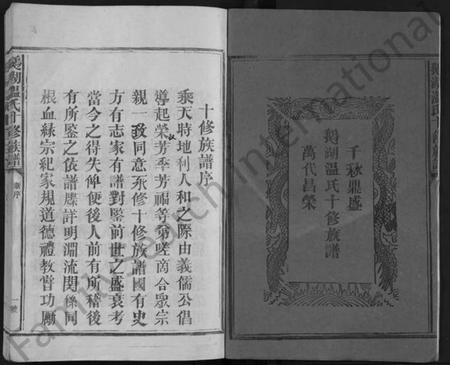 千秋鼎盛
鵝湖溫氏十修族譜
萬代昌榮
十修族譜序
乘天時地利人和之際由義儒公倡
導起榮芳季芳福等弟嗟商合眾宗
親一致同意承修十修族譜國有史
方有志家有譜對鑒前世之盛衰考
當今之得失俾便後人前有所稽後
有所鑒之依譜牒詳明淵流関係同
根血緣宗紀家規道德禮教嘗功勵
鵝湖溫氏十修族譜
序
一號
Family Search International